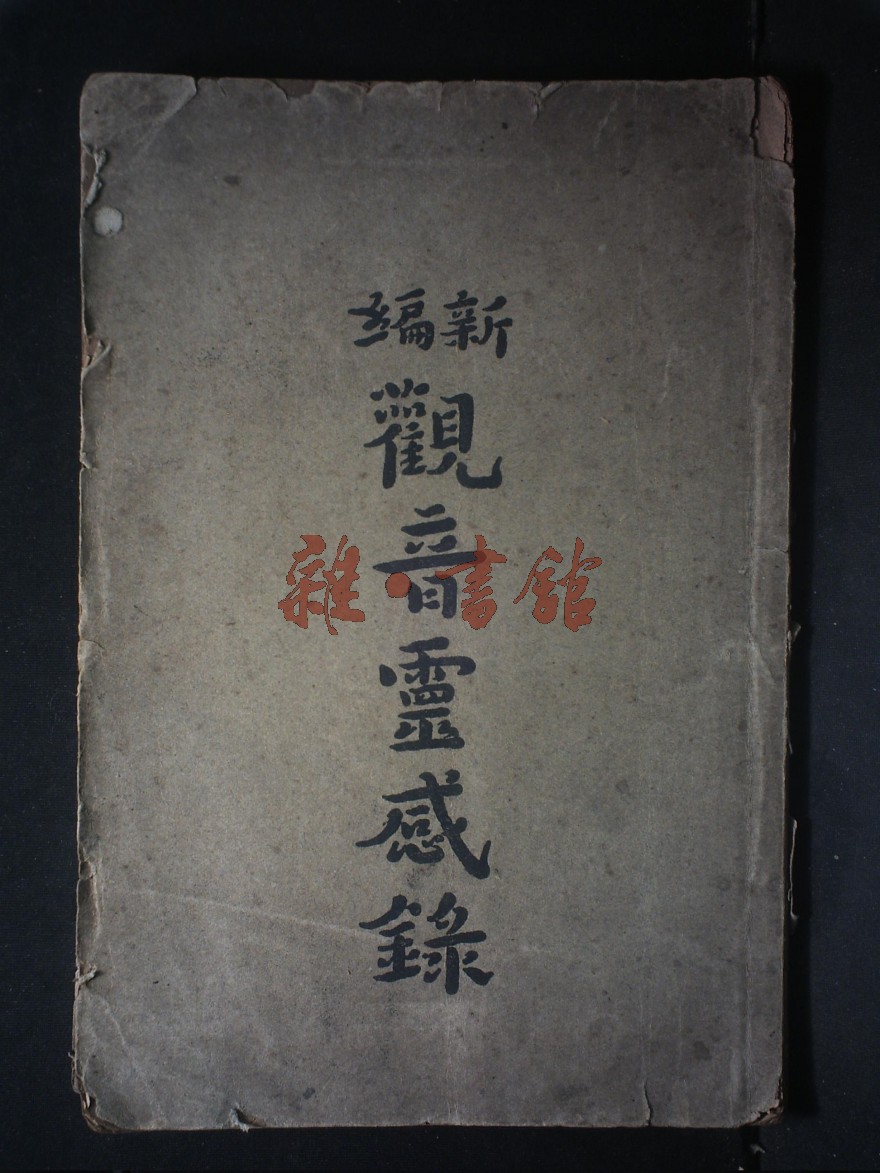 新編
觀音靈感錄
雜·書館